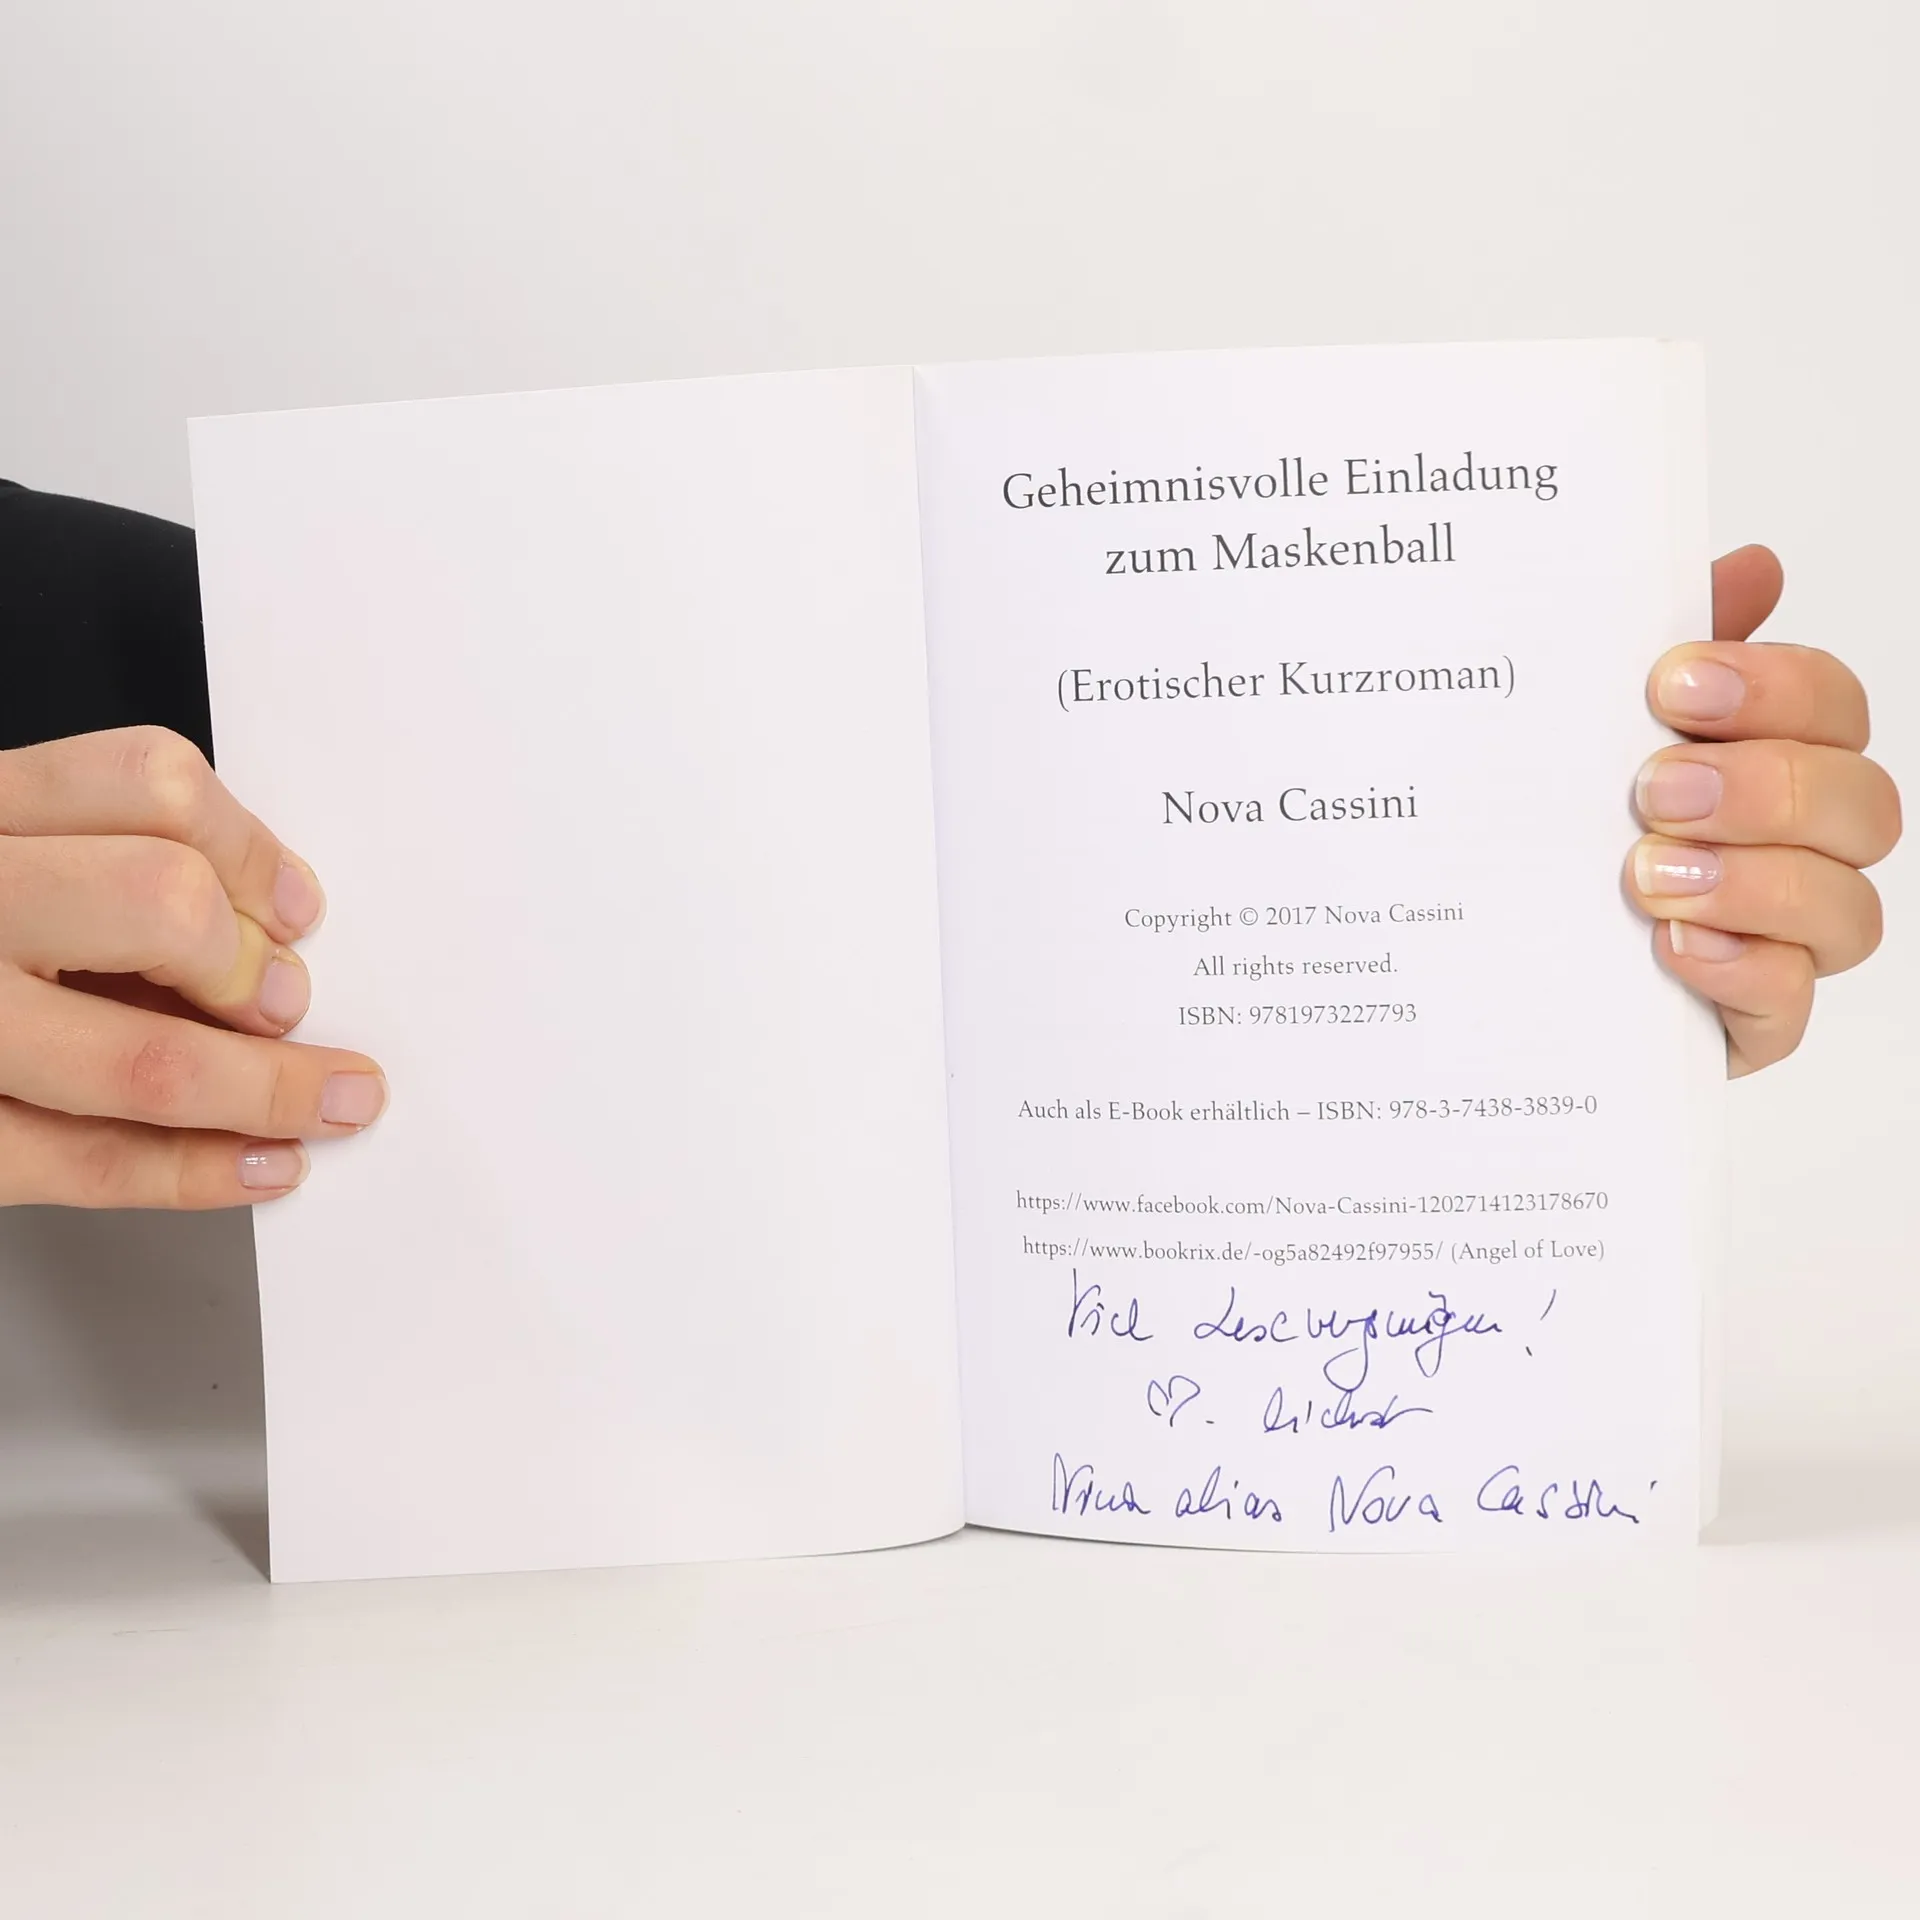 Geheimnisvolle Einladung
zum Maskenball
(Erotischer Kurzroman)
Nova Cassini
Copyright © 2017 Nova Cassini
All rights reserved.
ISBN: 9781973227793
Auch als E-Book erhältlich – ISBN: 978-3-7438-3839-0
https://www.facebook.com/Nova-Cassini-1202714123178670
https://www.bookrix.de/-og5a82492f97955/ (Angel of Love)
Viel Lesevergnügen!
♡.
Nina alias Nova Cassini